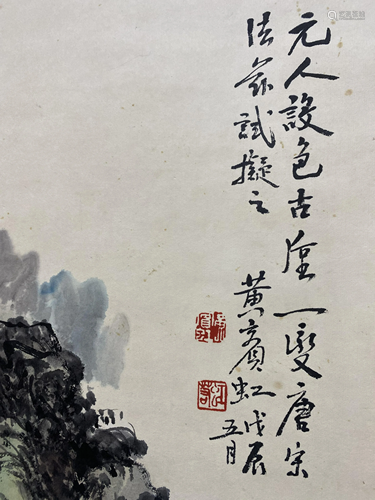 元人設色古厚一變唐宋
法茲試擬之
黃賓虹戊辰
五月